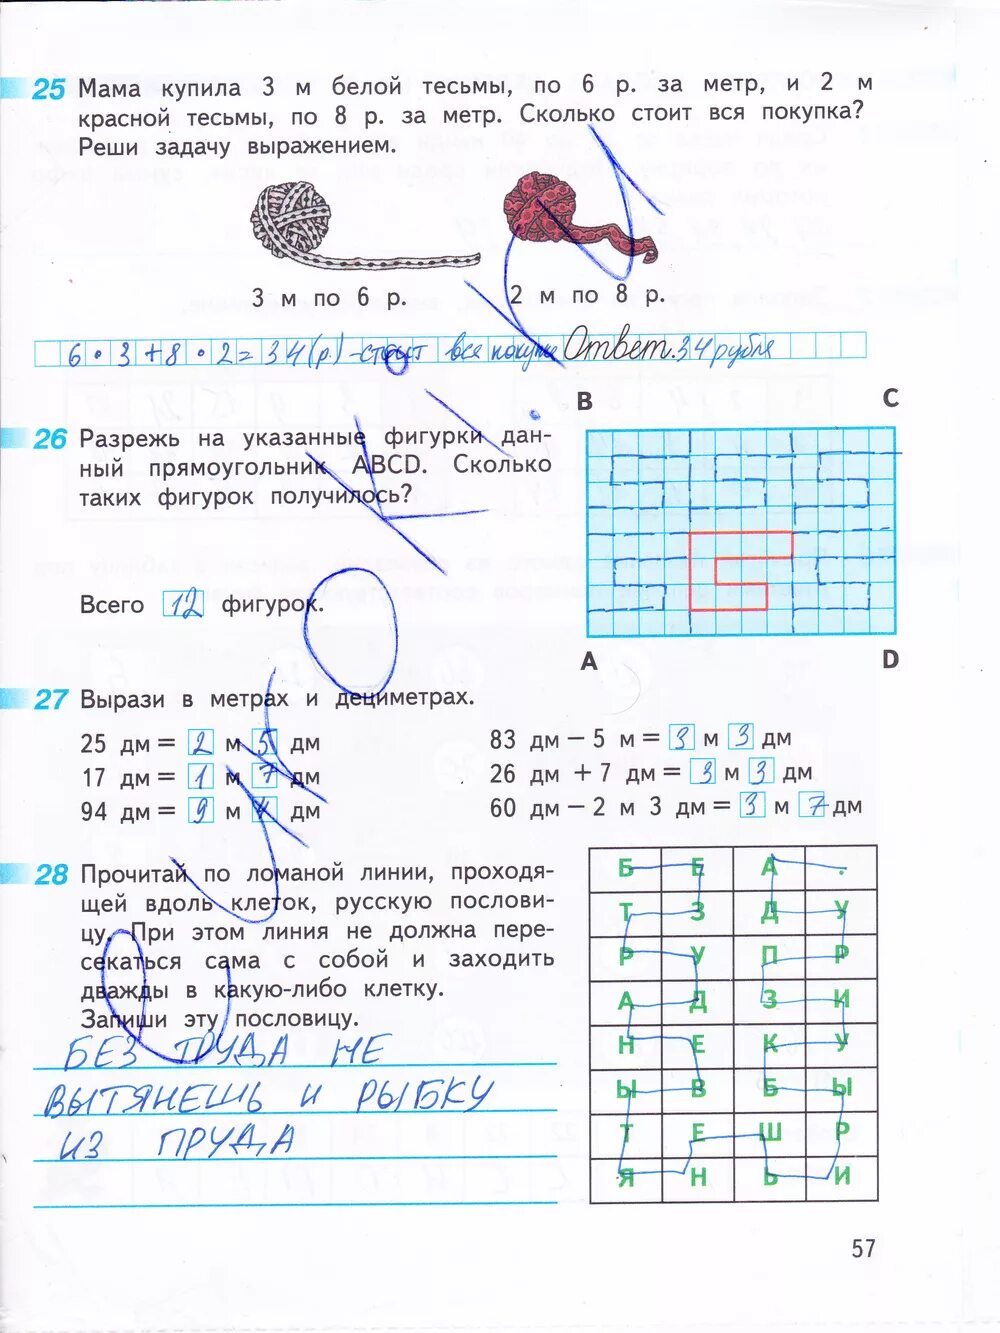 25 Мама купила 3 м белой тесьмы, по 6 р. за метр, и 2 м
красной тесьмы, по 8 р. за метр. Сколько стоит вся покупка?
Реши задачу выражением.
3 м по 6 р.
2 м по 8 р.
6 • 3 + 8 • 2 = 34 (р.) – стоит вся покупка Ответ. 34 рубля
26 Разрежь на указанные фигурки дан-
ный прямоугольник ABCD. Сколько
таких фигурок получилось?
Всего 12 фигурок.
B C
A D
27 Вырази в метрах и дециметрах.
25 дм = 2 м 5 дм
17 дм = 1 м 7 дм
94 дм = 9 м 4 дм
83 дм – 5 м = 3 м 3 дм
26 дм + 7 дм = 3 м 3 дм
60 дм – 2 м 3 дм = 3 м 7 дм
28 Прочитай по ломаной линии, проходя-
щей вдоль клеток, русскую послови-
цу. При этом линия не должна пере-
секаться сама с собой и заходить
дважды в какую-либо клетку.
Запиши эту пословицу.
БЕЗ ТРУДА НЕ
ВЫТЯНЕШЬ И РЫБКУ
ИЗ ПРУДА
Б Е А .
Т З Д У
Р У П Р
А Д З И
Н Е К У
Ы В Б Ы
Т Е Ш Р
Я Н Ь И
57